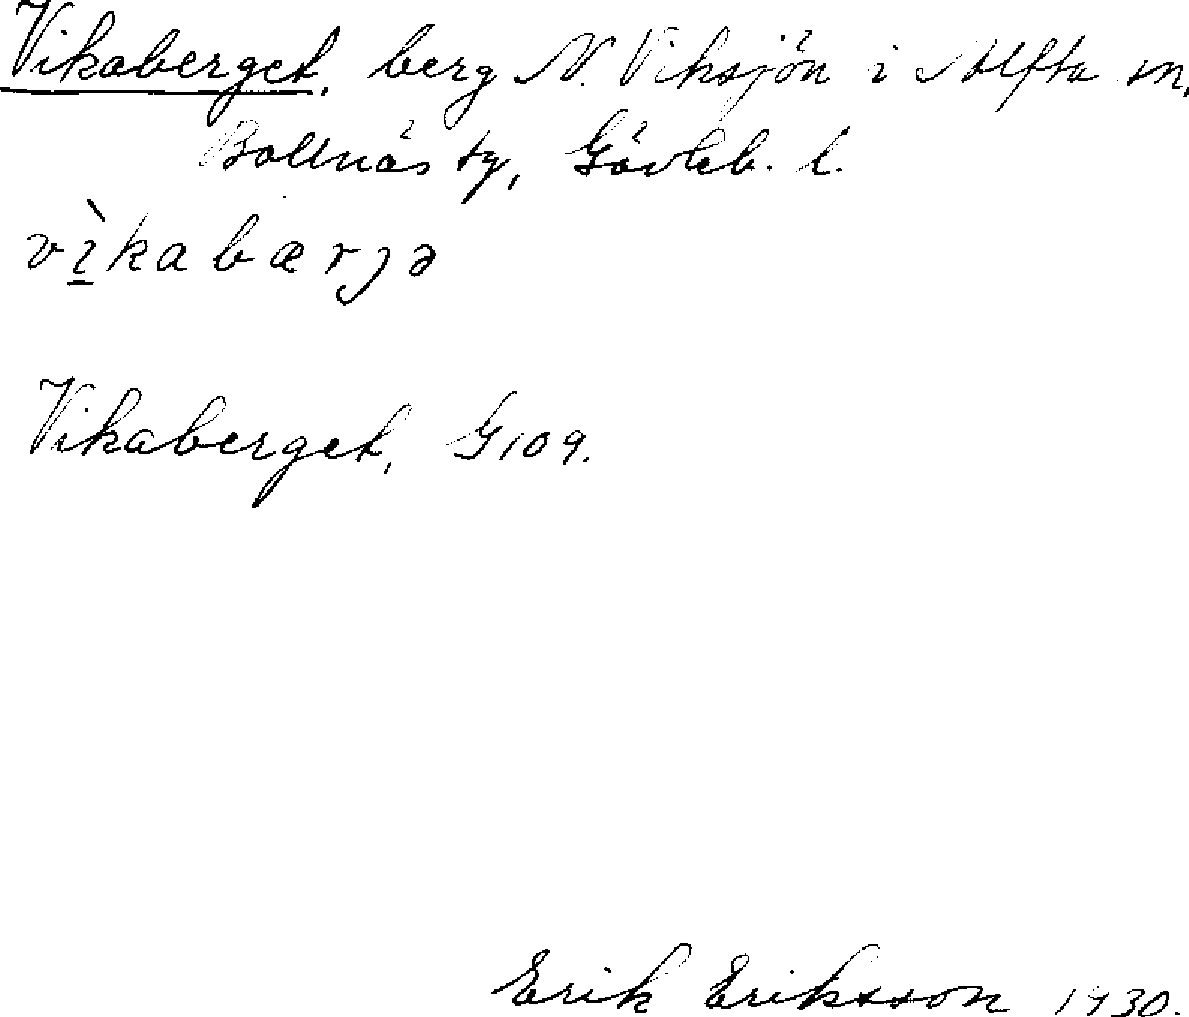 Vikaberget, berg N. Viksjön i Alfta sn,
Bollnäs tg, Gävleb. l.
vìkabærjə
Vikaberget, G109.
Erik Eriksson 1930.